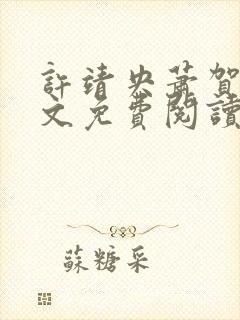 許靖央蕭賀
文免費閱讀
蘇糖采